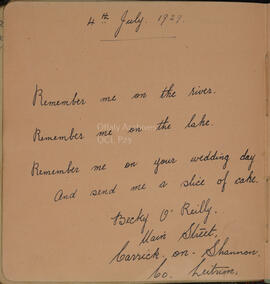 4th July. 1929.
Remember me on the river.
Remember me on the lake.
Offaly Archives
OCL P29
Remember me on your wedding day
And send me a slice of cake.
Becky O'Reilly.
Main Street,
Carrick-on-Shannon,
Co. Leitrim.